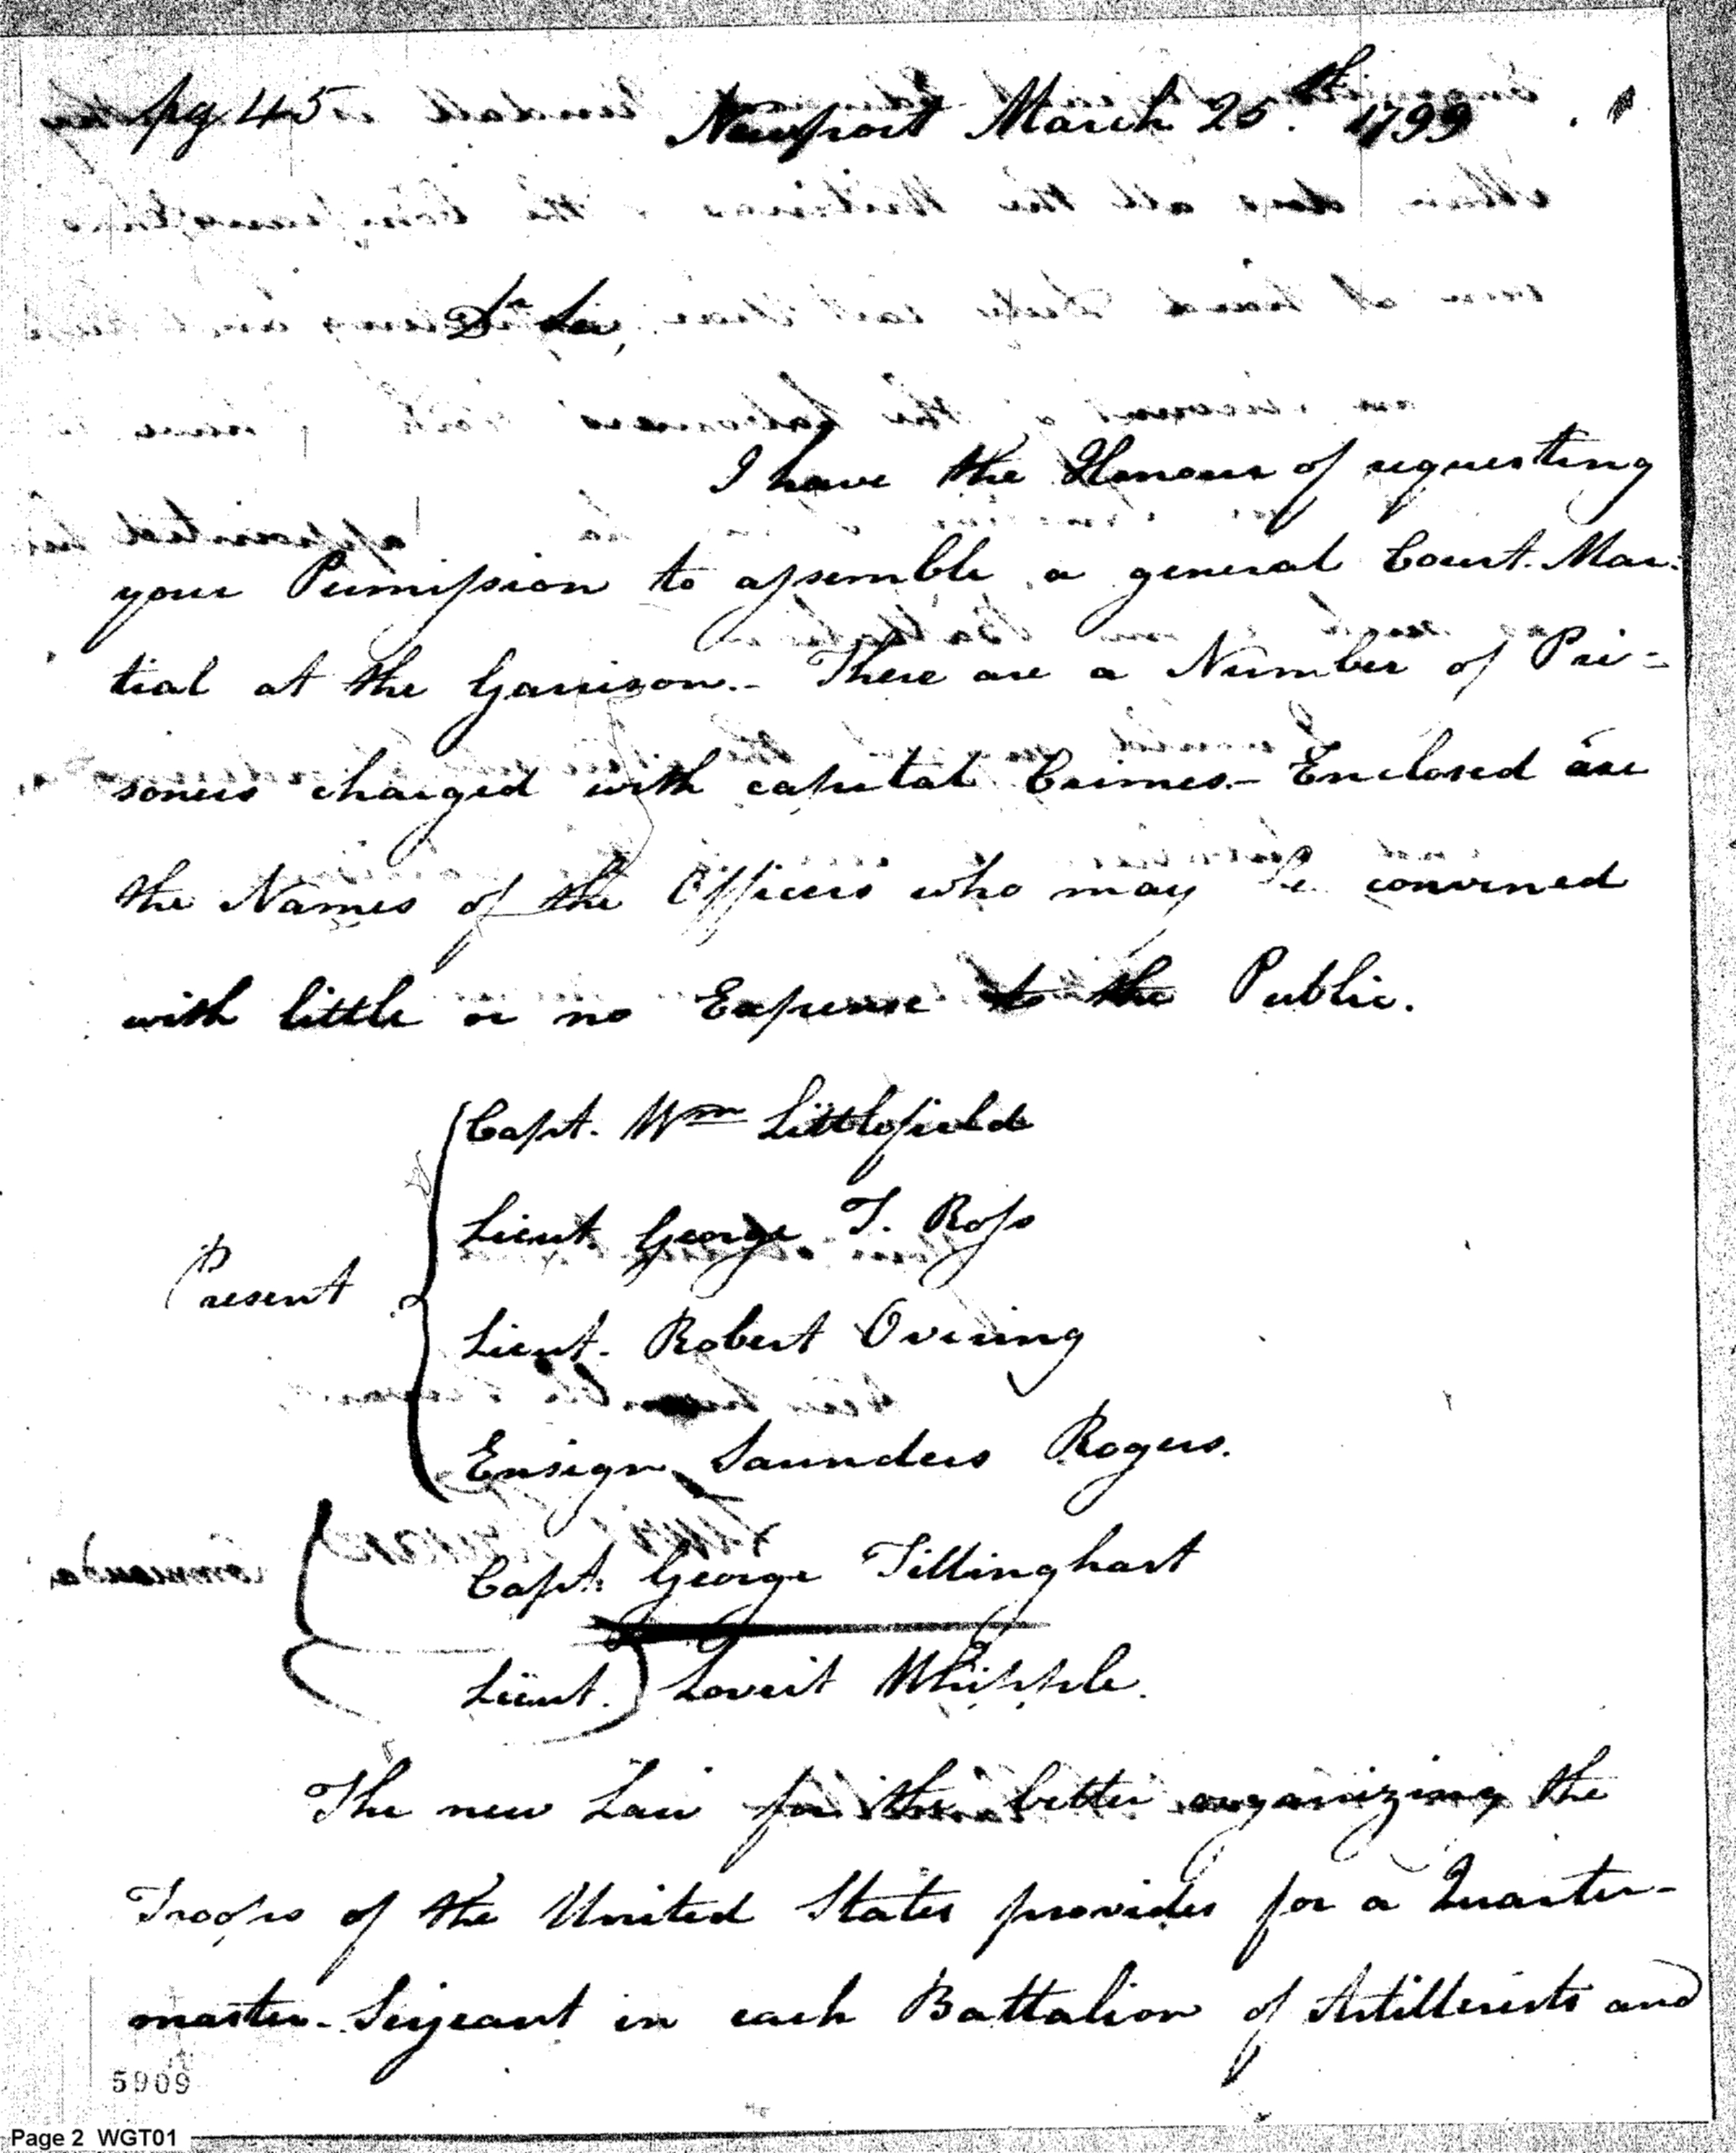 pg 45
Newport March 25.th 1799
Dr Sir,
I have the Honour of requesting
your Permission to assemble a general Court-Mar-
tial at the Garrison.- There are a Number of Pri-
soners charged with capital Crimes.- Enclosed are
the Names of the Officers who may be convened
with little or no Expense to the Public.
Capt. Wm Littlefield
Lieut. George T. Ross
Present
Lieut. Robert Overing
Ensign Saunders Rogers.
Capt. George Tillinghast
Lieut. Loveit Whipple.
The new Law for the better organizing the
Troops of the United States provides for a Quarter-
master-Serjeant in each Battalion of Artillerists and
5909
Page 2 WGT01